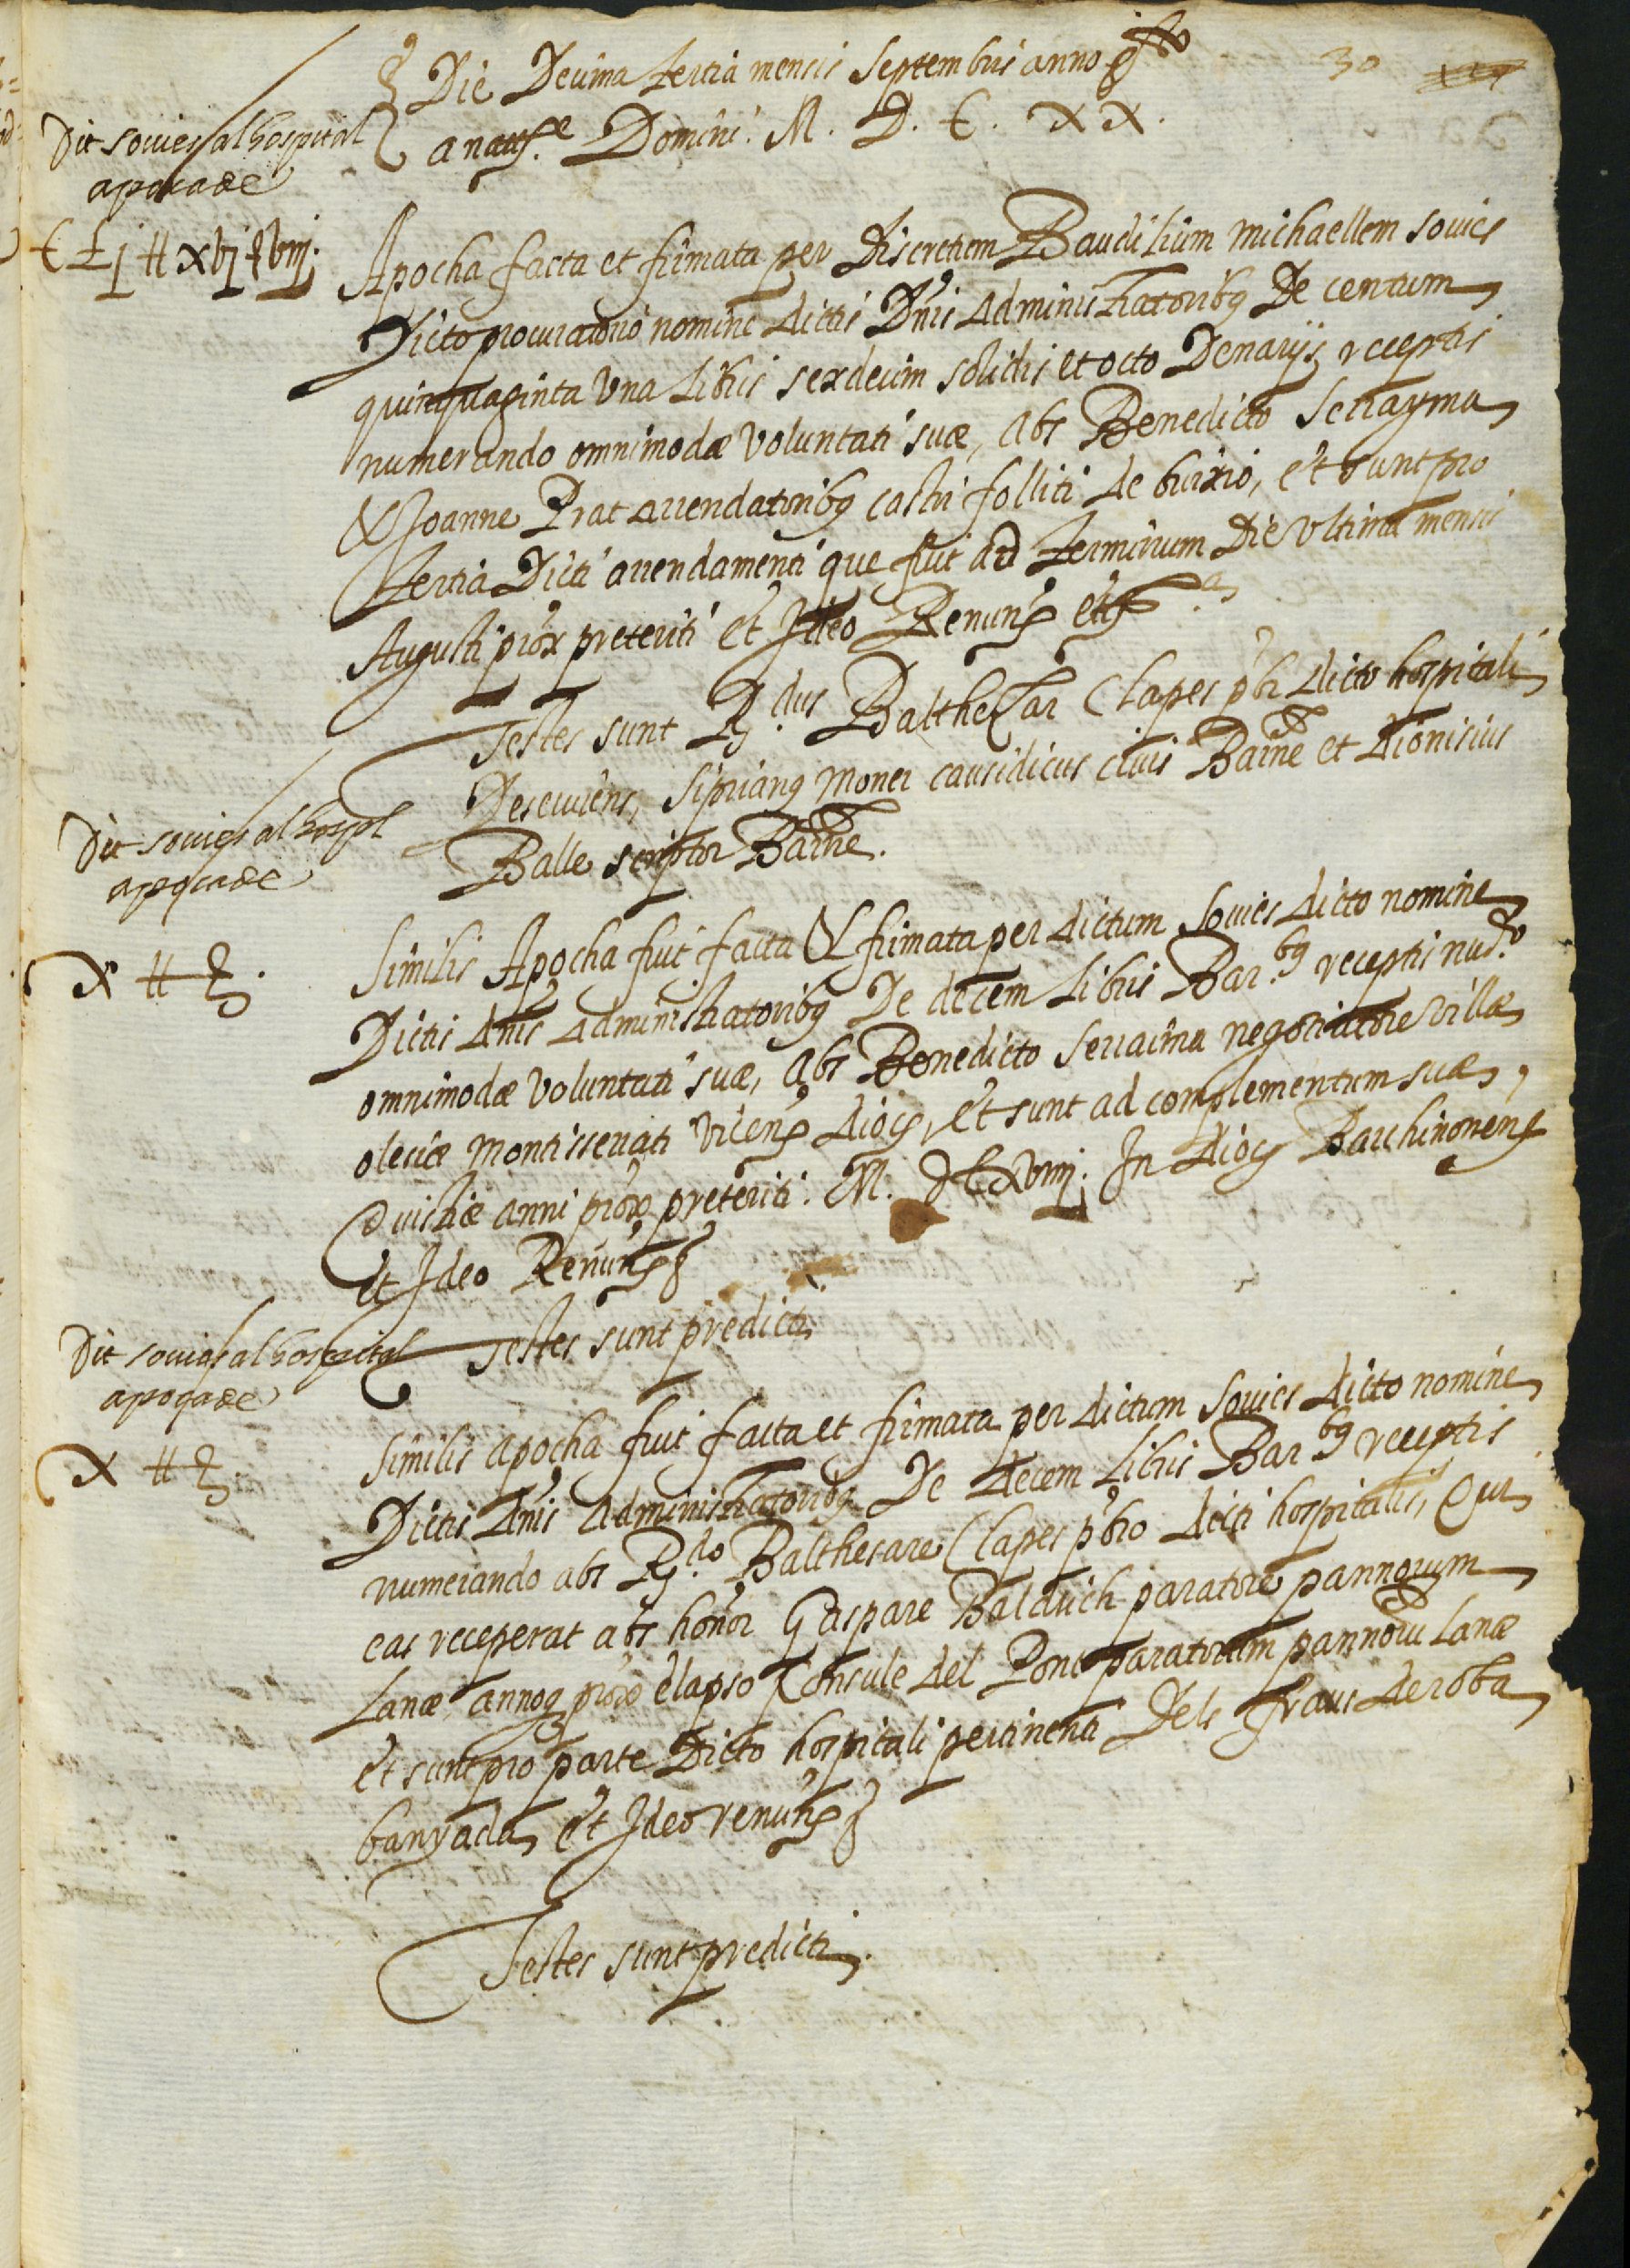 30
Die Decima tertia mensis Septembris anno
a natte. Domini. M. D. C. XX.
Dit souies al hospital
apoca de
C L j ℔ xvj ß viij.
Apocha facta et firmata per Discretum Baudilium Michaellem Souies
Dicto procuratorio nomine dictis Dnis Administratoribus De centum
quinquaginta una Libris sexdecim solidis et octo Denarijs receptis
numerando omnimodæ voluntati suæ, abs Benedicto Serrayma
& Joanne Prat arrendatoribus castri folliti de buixio, et sunt pro
tertia Dicti arrendamenti que fuit ad terminum Die ultima mensis
Augusti prox preteriti et Ideo Renuns etc
Testes sunt Rdus Balthezar Clapes pbr dicto hospitali
Deserviens, Siprianus Moner causidicus civis Barne et Dionisius
Balle scriptor Barne.
Dit souies al hospl
apoca de
X ℔ ß.
Similis Apocha fuit facta & firmata per dictum Souies dicto nomine
Dictis dnis administratoribus De decem Libris Bar.bus receptis nudo.
omnimodæ voluntati suæ, abs Benedicto Serraima negotiatore villæ
olesiæ Montisserrati Vicens diocs, et sunt ad complementum suæ
Quistiæ anni prox preteriti. M. DCXVIIIJ. In diocs Barchinonens
et Ideo Renuns
Testes sunt predicti
Dit souies al hospital
apoca de
X ℔ ß.
Similis apocha fuit facta et firmata per dictum Souies dicto nomine
Dictis dnis administratoribus De decem Libris Bar.bus receptis
numerando abs Rdo. Balthesare Clapes pbro dicti hospitalis, Qui
eas receperat abs honor Gaspare Balduich paratore pannorum
Lanæ, annoq prox elapso Consule del Pont paratorum pannoru Lanæ
et sunt pro parte Dicto hospitali pertinenti Dels fraus de roba
banyada et Ideo renuns
Testes sunt predicti.